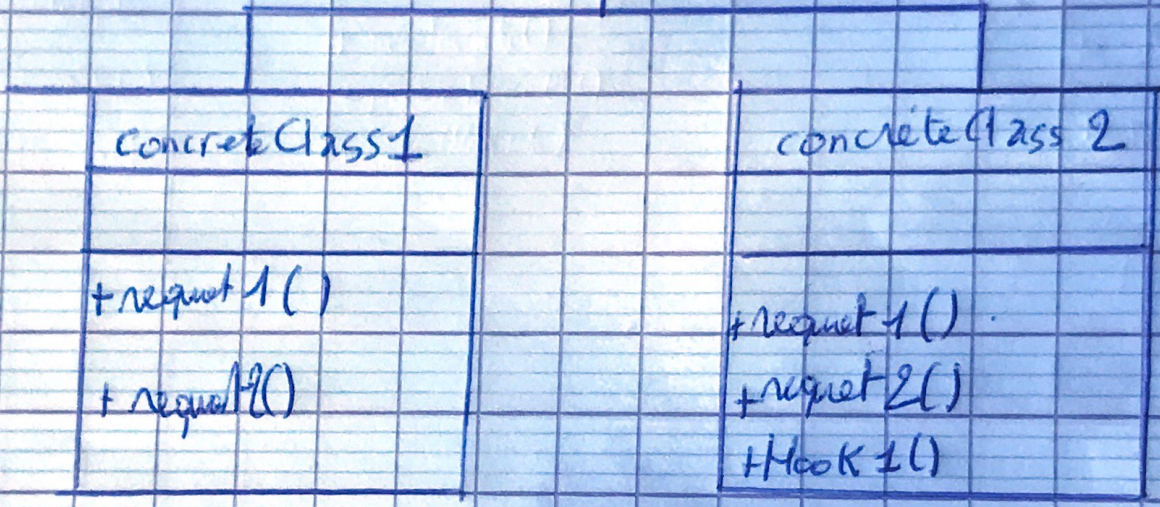 concreteClass1
+requet1()
+requet2()
concréteClass 2
+requet1()
+requet2()
+Hook1()